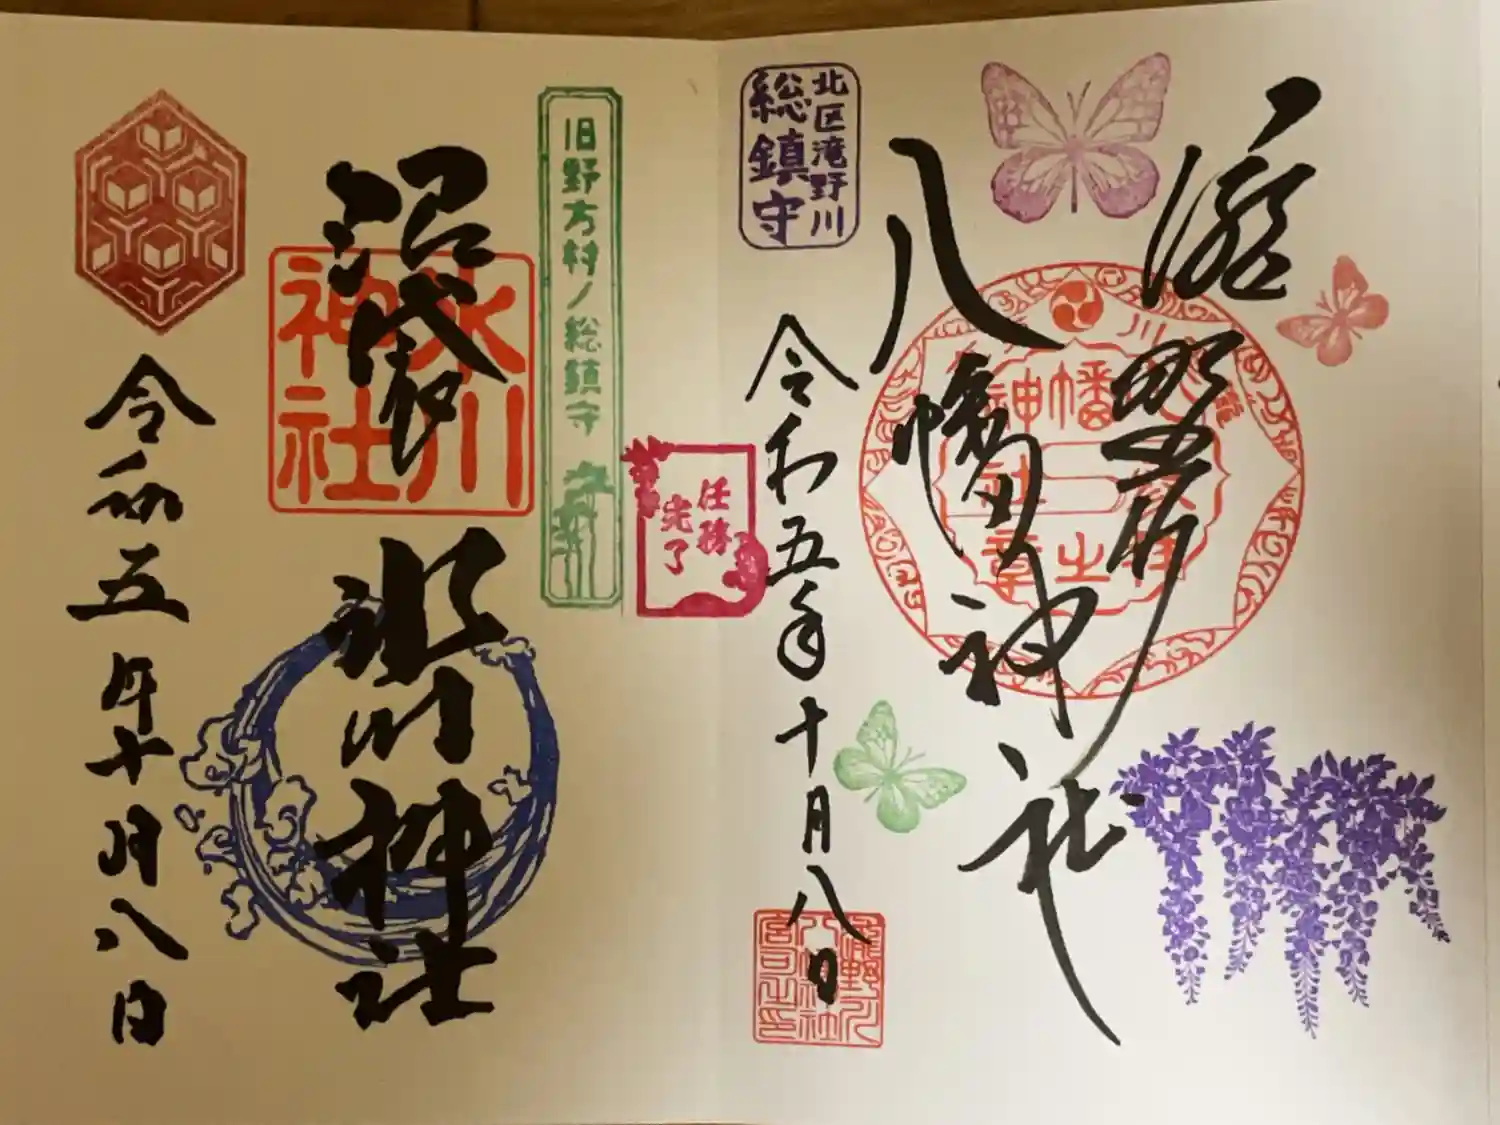 北区滝野川
総鎮守
滝野川
八幡神社
令和五年十月八日
任務
完了
旧野方村ノ総鎮守
沼袋
氷川神社
氷川
神社
令和五年十月八日